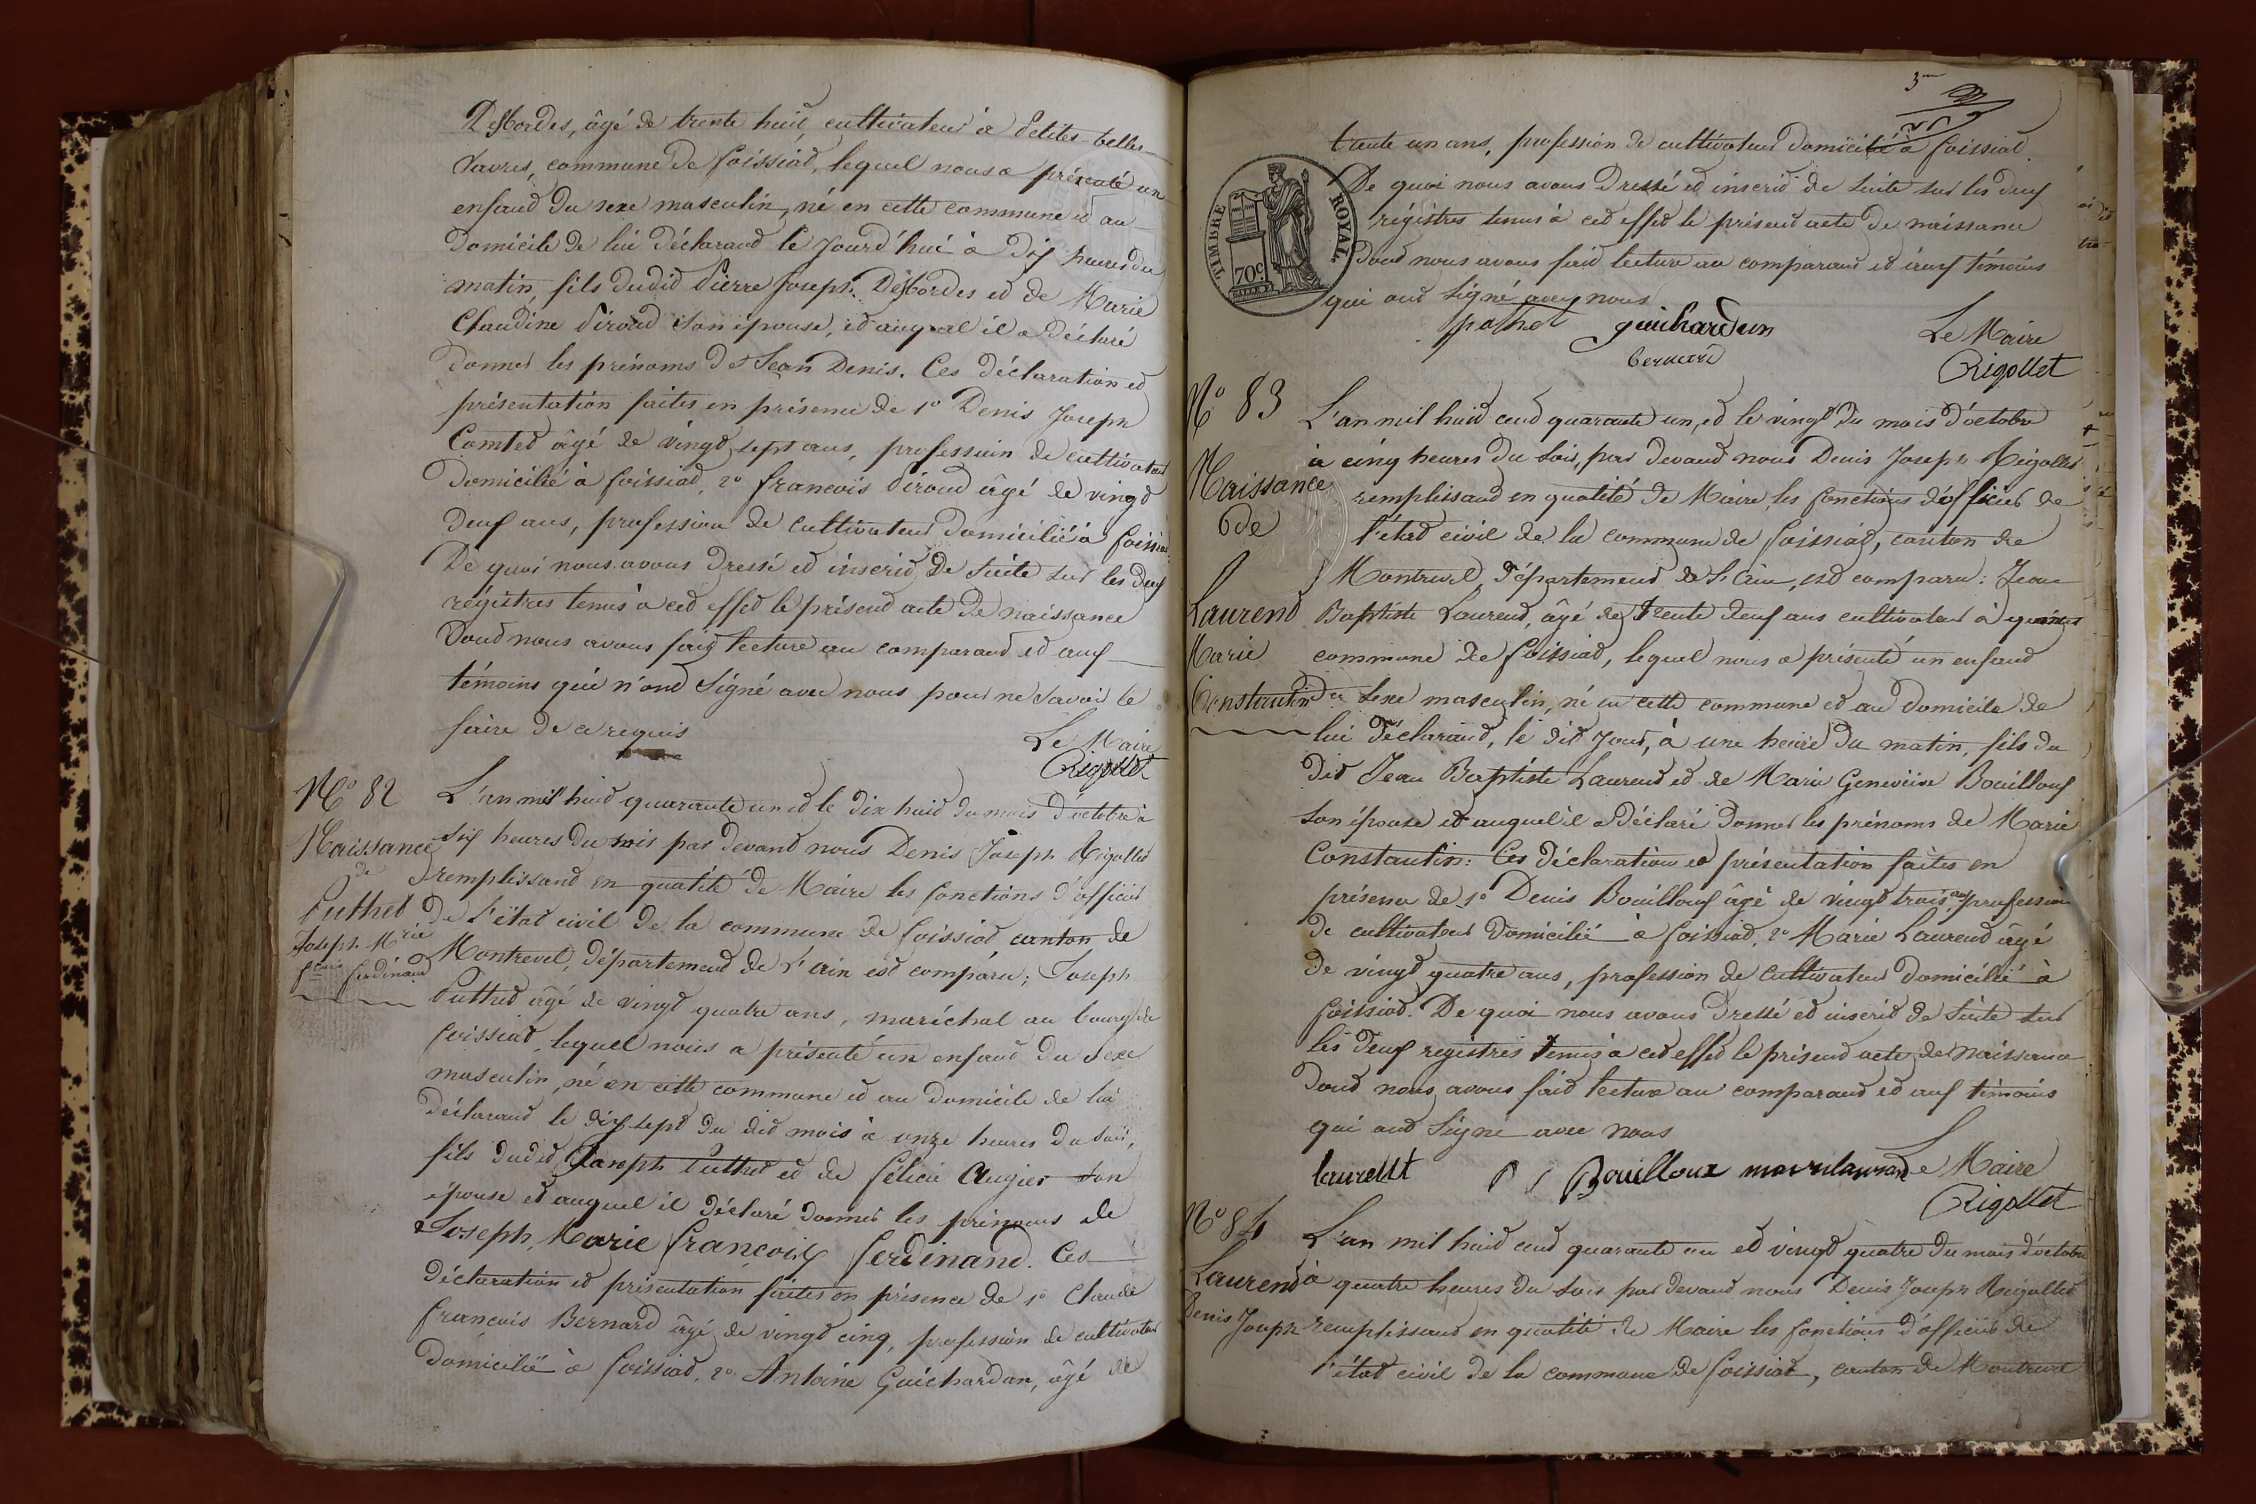 Desbordes, âgé de trente huit, cultivateur à Petites-belles-
Vavres, commune de Foissiat, lequel nous a présenté un
enfant du sexe masculin, né en cette commune et au
domicile de lui déclarant le Jourd'hui à dix heures du
matin, fils dudit Pierre Joseph Desbordes et de Marie
Claudine Piroud son épouse, et auquel il a déclaré
donner les prénoms de Jean Denis. Ces déclaration et
présentation faites en présence de 1o Denis Joseph
Comtet âgé de vingt sept ans, profession de cultivateur
domicilié à foissiat, 2o francois Piroud âgé de vingt
deux ans, profession de cultivateur domicilié à foissiat
De quoi nous avons dressé et inscrit de suite sur les deux
régistres tenus à cet effet le présent acte de naissance
dont nous avons fait lecture au comparant et aux
témoins qui n'ont signé avec nous pour ne savoir le
faire de ce requis
Le Maire
Rigollet
No 82
Naissance
de
Puthet
Joseph Mrie
fcois ferdinand
L'an mil huit quarante un et le dix huit du mois d'octobre à
six heures du soir par devant nous Denis Joseph Rigollet
remplissant en qualité de Maire les fonctions d'officier
de l'état civil de la commune de foissiat canton de
Montrevel, département de l'ain est comparu; Joseph
Puthet âgé de vingt quatre ans, maréchal au bourg de
foissiat, lequel nous a présenté un enfant du sexe
masculin, né en cette commune et au domicile de lui
déclarant le dix sept du dit mois à onze heures du soir,
fils dudit Joseph Puthet et de félicie Augier son
épouse et auquel il déclaré donner les prénoms de
Joseph, Marie françois ferdinand. Ces
déclaration et présentation faites en présence de 1o Claude
francois Bernard âgé de vingt cinq, profession de cultivateur
domicilié à foissiat, 2o Antoine Guichardan, âgé de
trente un ans, profession de cultivateur domicilié à foissiat.
De quoi nous avons dressé et inscrit de suite sur les deux
régistres tenus à cet effet le présent acte de naissance
dont nous avons fait lecture au comparant et iceux témoins
qui ont signé avec nous
TIMBRE ROYAL
70c
puthet guichardun
bernard
Le Maire
Rigollet
No 83
Naissance
de
Laurend
Marie
Constantin
L'an mil huit cent quarante un, et le vingt du mois d'octobre
à cinq heures du soir, par devant nous Denis Joseph Rigollet
remplissant en qualité de Maire, les fonctions d'officier de
l'état civil de la commune de foissiat, canton de
Montrevel, département de l'ain, est comparu: Jean
Baptiste Laurend, âgé de trente deux ans cultivateur à
commune de foissiat, lequel nous a présenté un enfant
du sexe masculin, né en cette commune et au domicile de
lui déclarant, le dit jour, à une heure du matin, fils du
dit Jean Baptiste Laurend et de Marie Geneviève Bouilloux
son épouse et auquel il a déclaré donner les prénoms de Marie
Constantin: Ces déclaration et présentation faites en
présence de 1o Denis Bouilloux âgé de vingt trois ans profession
de cultivateur domicilié à foissiat, 2o Marie Laurend âgé
de vingt quatre ans, profession de cultivateur domicilié à
foissiat. De quoi nous avons dressé et inscrit de suite sur
les deux registres tenus à cet effet le présent acte de Naissance
dont nous avons fait lecture au comparant et aux témoins
qui ont signé avec nous
Bouilloux
Le Maire
Rigollet
No 84
Laurend
Denis Joseph
L'an mil huit cent quarante un et vingt quatre du mois d'octobre
à quatre heures du soir par devant nous Denis Joseph Rigollet
remplissant en qualité de Maire les fonctions d'officier de
l'état civil de la commune de foissiat, canton de Montrevel